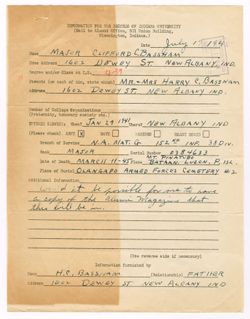 INFORMATION FOR THE RECORDS OF INDIANA UNIVERSITY
(Mail to Alumni Office, Union Building,
Bloomington, Indiana.)
Date July 194
Name MAJOR CLIFFORD C. BASSHAM
Home Address 1602 DEWEY ST. NEW ALBANY IND.
Degree and/or Class at I.U.
Parents (or next of kin, state which) MR + MRS HARRY C. BASSHAM
Address 1602 DEWEY ST. NEW ALBANY IND
Member of College Organizations
(Fraternity, honorary society etc.)
JAN 29 1941 NEW ALBANY IND
(Please Check) Army X Navy
Branch of Service N.A. NAT G 152nd INF. 38 DIV.
Rank MAJOR Serial Number 0384633
Date of Death MARCH 11-45 Place MT. PINATUBO BATAAN. LUZON. P.I.
Place of Burial OLANGAPO ARMED FORCES CEMETERY #2
Additional Information
Would it be possible for me to
a copy of the Alumni Magazine that
this will be in.
(Use reverse side if necessary)
Information furnished by
Name H.C. BASSHAM (Relationship) FATHER
Address 1602 DEWEY ST NEW ALBANY IND